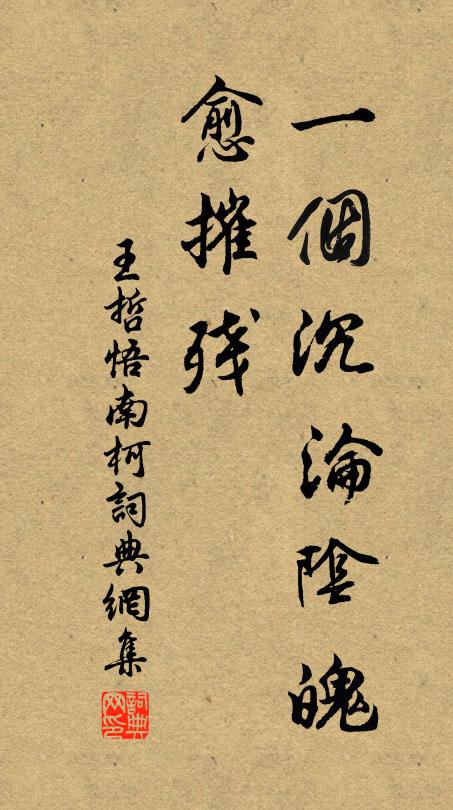 一個沉淪陰魄
愈摧残
王哲悟南柯詞典網集
詞典
网印